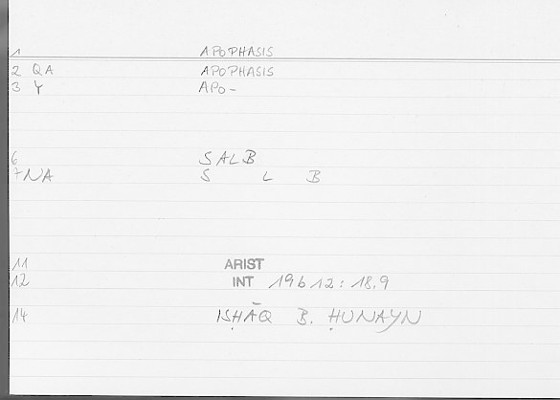 1 APOPHASIS
2 QA APOPHASIS
3 Y APO-
6 SALB
7 NA S L B
11 ARIST
12 INT 19b12:18.9
14 ISḤĀQ B. ḤUNAYN